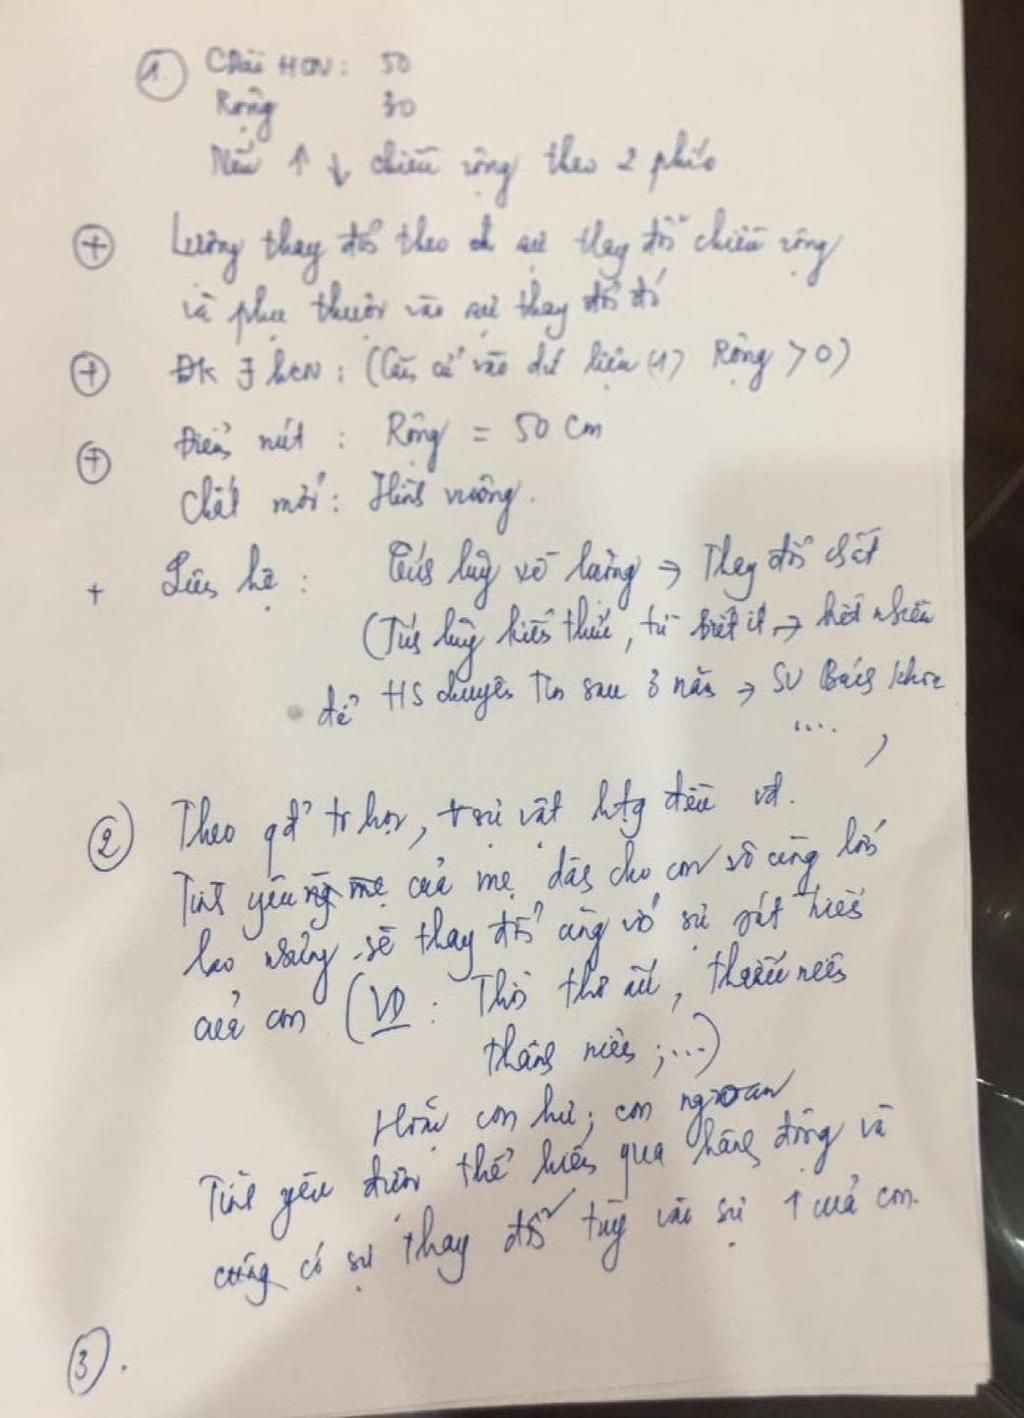 1. Chiều HCN: 50
Rộng 30
Nếu ↑ ↓ chiều rộng theo 2 phía
+ Lượng thay đổi theo sự thay đổi chiều rộng
và phụ thuộc vào sự thay đổi đó
+ ĐK ∃ hcn: (Căn cứ vào dữ liệu (1) Rộng > 0)
+ Điểm nút: Rộng = 50 cm
Chất mới: Hình vuông.
+ Liên hệ: Tích luỹ về lượng → Thay đổi chất
(Tích luỹ kiến thức, từ biết ít → biết nhiều
để HS chuyên Tin sau 3 năm → SV Bách khoa
....)
2 Theo qđ tr học, sự vật htg đều vđ.
Tình yêu của mẹ dành cho con vô cùng lớn
lao nhưng sẽ thay đổi cùng với sự phát triển
của con (VD: Thời thơ ấu, thiếu niên
thanh niên;...)
Hoặc con hư; con ngoan
Tình yêu được thể hiện qua hành động và
cũng có sự thay đổi tùy vào sự ↑ của con.
3.